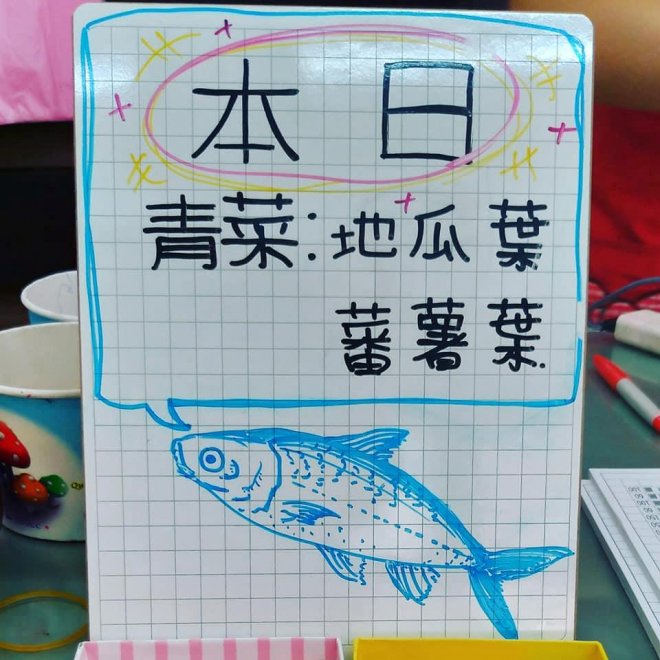 本日
青菜:地瓜葉
蕃薯葉